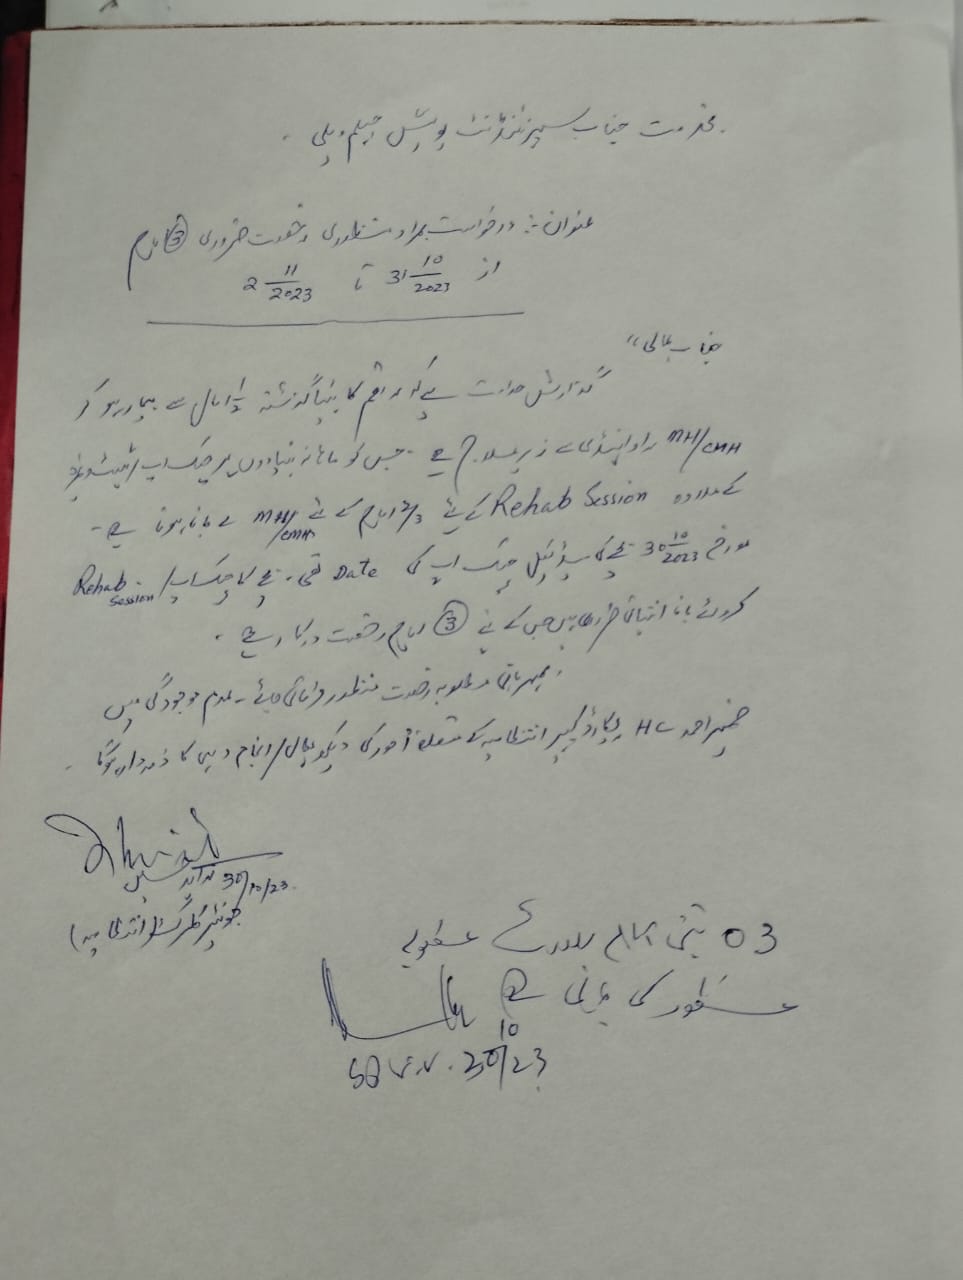 بخدمت جناب سپرنٹنڈنٹ پولیس جہلم ویلی ۔
عنوان:۔ درخواست بمراد منظوری رخصت ضروری 3 ایام
از 31 10/2023 تا 2 11/2023
جناب عالی"
گذارش خدمت ہے کہ راقم کا بیٹا گذشتہ 1½ سال سے بیمار ہو کر
MH/CMH راولپنڈی سے زیر علاج ہے ۔ جس کو ماہانہ بنیادوں پر چیک اپ/ٹیسٹ وغیرہ
کے علاوہ Rehab Session کے لیے 2/3 ایام کے لئے MH/CMH لے جانا ہوتا ہے ۔
مورخہ 30 10/2023 بچے کی میڈیکل چیک اپ کی Date تھی۔ بچے کا چیک اپ/ Rehab Session
کروائے جانا انتہائی ضروری ہیں جس کے لیے 3 ایام رخصت درکار ہے ۔
مہربانی مطلوبہ رخصت منظور فرمائی جائے ۔ عدم موجودگی میں
ضمیر احمد HC ریکارڈ کیپر انتظامیہ کے متعلقہ امور کی دیکھ بھال/انجام دہی کا ذمہ دار ہوگا ۔
30/10/23
جونیئر کلرک (انتظامیہ)
03 یوم
منظور کی جاتی ہے
30/10/23